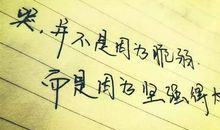 哭，并不是因为脆弱.
而是因为坚强得太